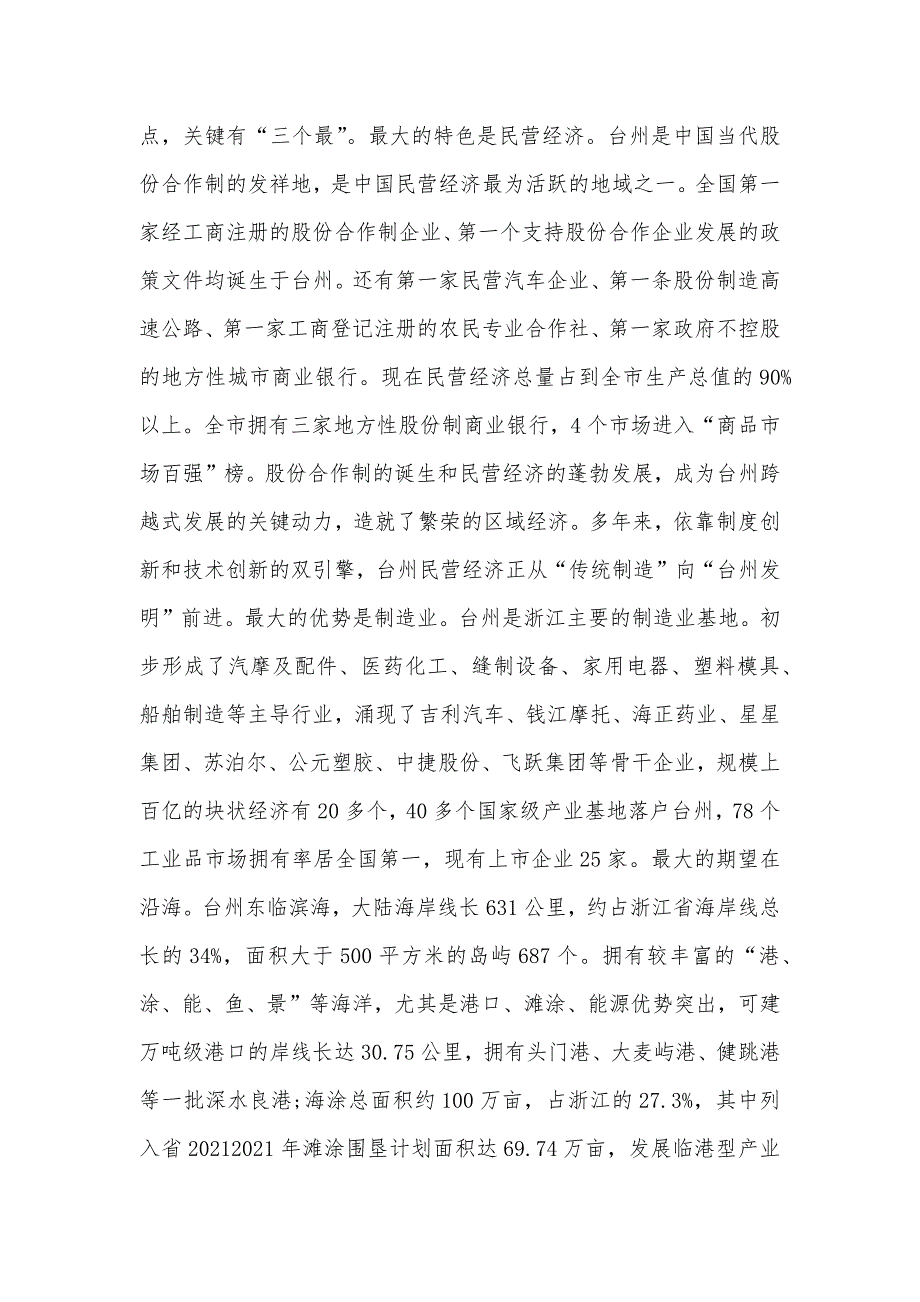 点，关键有“三个最”。最大的特色是民营经济。台州是中国当代股
份合作制的发祥地，是中国民营经济最为活跃的地域之一。全国第一
家经工商注册的股份合作制企业、第一个支持股份合作企业发展的政
策文件均诞生于台州。还有第一家民营汽车企业、第一条股份制造高
速公路、第一家工商登记注册的农民专业合作社、第一家政府不控股
的地方性城市商业银行。现在民营经济总量占到全市生产总值的 90%
以上。全市拥有三家地方性股份制商业银行，4 个市场进入“商品市
场百强”榜。股份合作制的诞生和民营经济的蓬勃发展，成为台州跨
越式发展的关键动力，造就了繁荣的区域经济。多年来，依靠制度创
新和技术创新的双引擎，台州民营经济正从“传统制造”向“台州发
明”前进。最大的优势是制造业。台州是浙江主要的制造业基地。初
步形成了汽摩及配件、医药化工、缝制设备、家用电器、塑料模具、
船舶制造等主导行业，涌现了吉利汽车、钱江摩托、海正药业、星星
集团、苏泊尔、公元塑胶、中捷股份、飞跃集团等骨干企业，规模上
百亿的块状经济有 20 多个，40 多个国家级产业基地落户台州，78 个
工业品市场拥有率居全国第一，现有上市企业 25 家。最大的期望在
沿海。台州东临滨海，大陆海岸线长 631 公里，约占浙江省海岸线总
长的 34%，面积大于 500 平方米的岛屿 687 个。拥有较丰富的“港、
涂、能、鱼、景”等海洋，尤其是港口、滩涂、能源优势突出，可建
万吨级港口的岸线长达 30.75 公里，拥有头门港、大麦屿港、健跳港
等一批深水良港;海涂总面积约 100 万亩，占浙江的 27.3%，其中列
入省 20212021 年滩涂围垦计划面积达 69.74 万亩，发展临港型产业